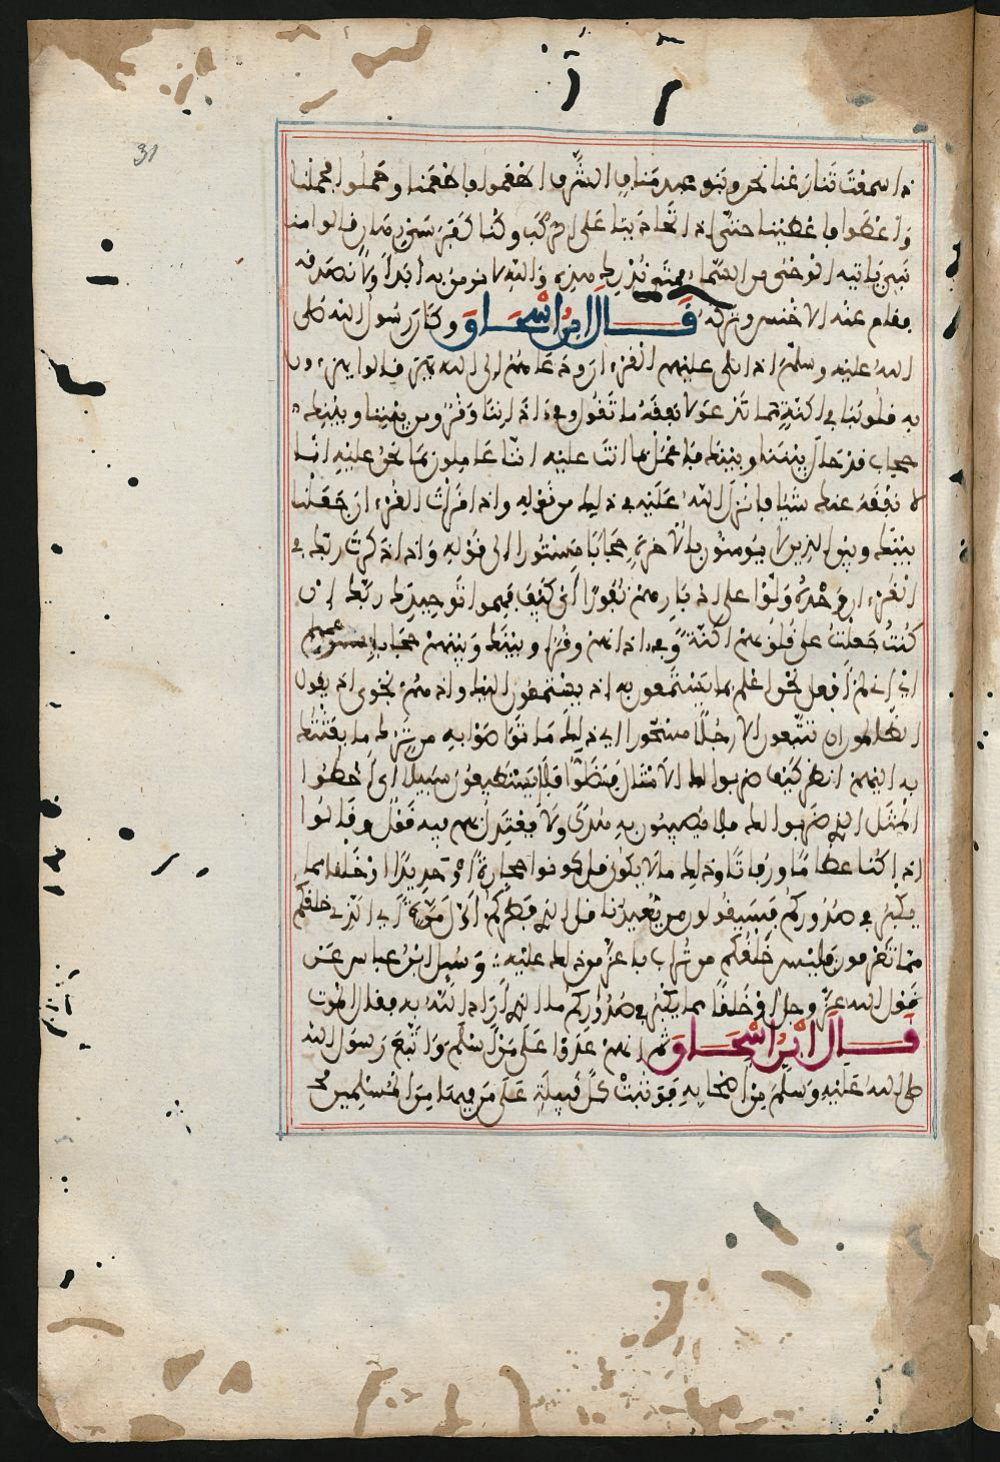 31
ذا سمعت تنازعنا نحن وبنو عبد مناف الشرف اطعموا فاطعمنا وحملوا فحملنا
واعطوا فاعطينا حتى اذا تحاذينا على الركب وكنا كفرسي رهان قالوا منا
نبي ياتيه الوحي من السماء فمتى ندرك هذه والله لا نومن به ابدا ولا نصدقه
فقام عنه الاخنس وتركه قال ابن اسحاق وكان رسول الله صلى
الله عليه وسلم اذا تلى عليهم القرءان ودعاهم الى الله قالوا يهزءون
به قلوبنا في اكنة مما تدعونا لا نفقه ما تقول وفي ءاذاننا وقر ومن بيننا وبينك
حجاب قد حال بيننا وبينك فاعمل بما انت عليه اننا عاملون بما نحن عليه انا
لا نفقه عنك شيا فانزل الله عليه في ذلك من قولهم واذا قرات القرءان جعلنا
بينك وبين الذين لا يومنون بالاخرة حجابا مستورا الى قوله واذا ذكرت ربك في
القرءان وحده ولوا على ادبارهم نفورا اي كيف فهموا توحيدك ربك ان
كنت جعلت على قلوبهم اكنة وفي ءاذانهم وقرا وبينك وبينهم حجابا بزعمهم
اي اني لم افعل نحن اعلم بما يستمعون به اذ يستمعون اليك واذ هم نجوى اذ يقول
الظالمون ان تتبعون الا رجلا مسحورا اي ذلك ما تواصوا به من ترك ما بعثتك
به اليهم انظر كيف ضربوا لك الامثال فضلوا فلا يستطيعون سبيلا اي اخطئوا
المثل الذي ضربوا لك فلا يصيبون به هدى ولا يعتدل لهم فيه قول وقالوا
اءذا كنا عظاما ورفاتا وذلك ما لا يكون قل كونوا حجارة او حديدا او خلقا مما
يكبر في صدوركم فسيقولون من يعيدنا قل الذي فطركم اول مرة اي الذي خلقكم
مما تعرفون فليس خلقكم من تراب باعز من ذلك عليه وسيل ابن عباس عن
قول الله عز وجل او خلقا مما يكبر في صدوركم ما الذي اراد الله به فقال الموت
قال ابن اسحاق ثم انهم عدوا على من اسلم واتبع رسول الله
صلى الله عليه وسلم من اصحابه فوثبت كل قبيلة على من فيها من المسلمين